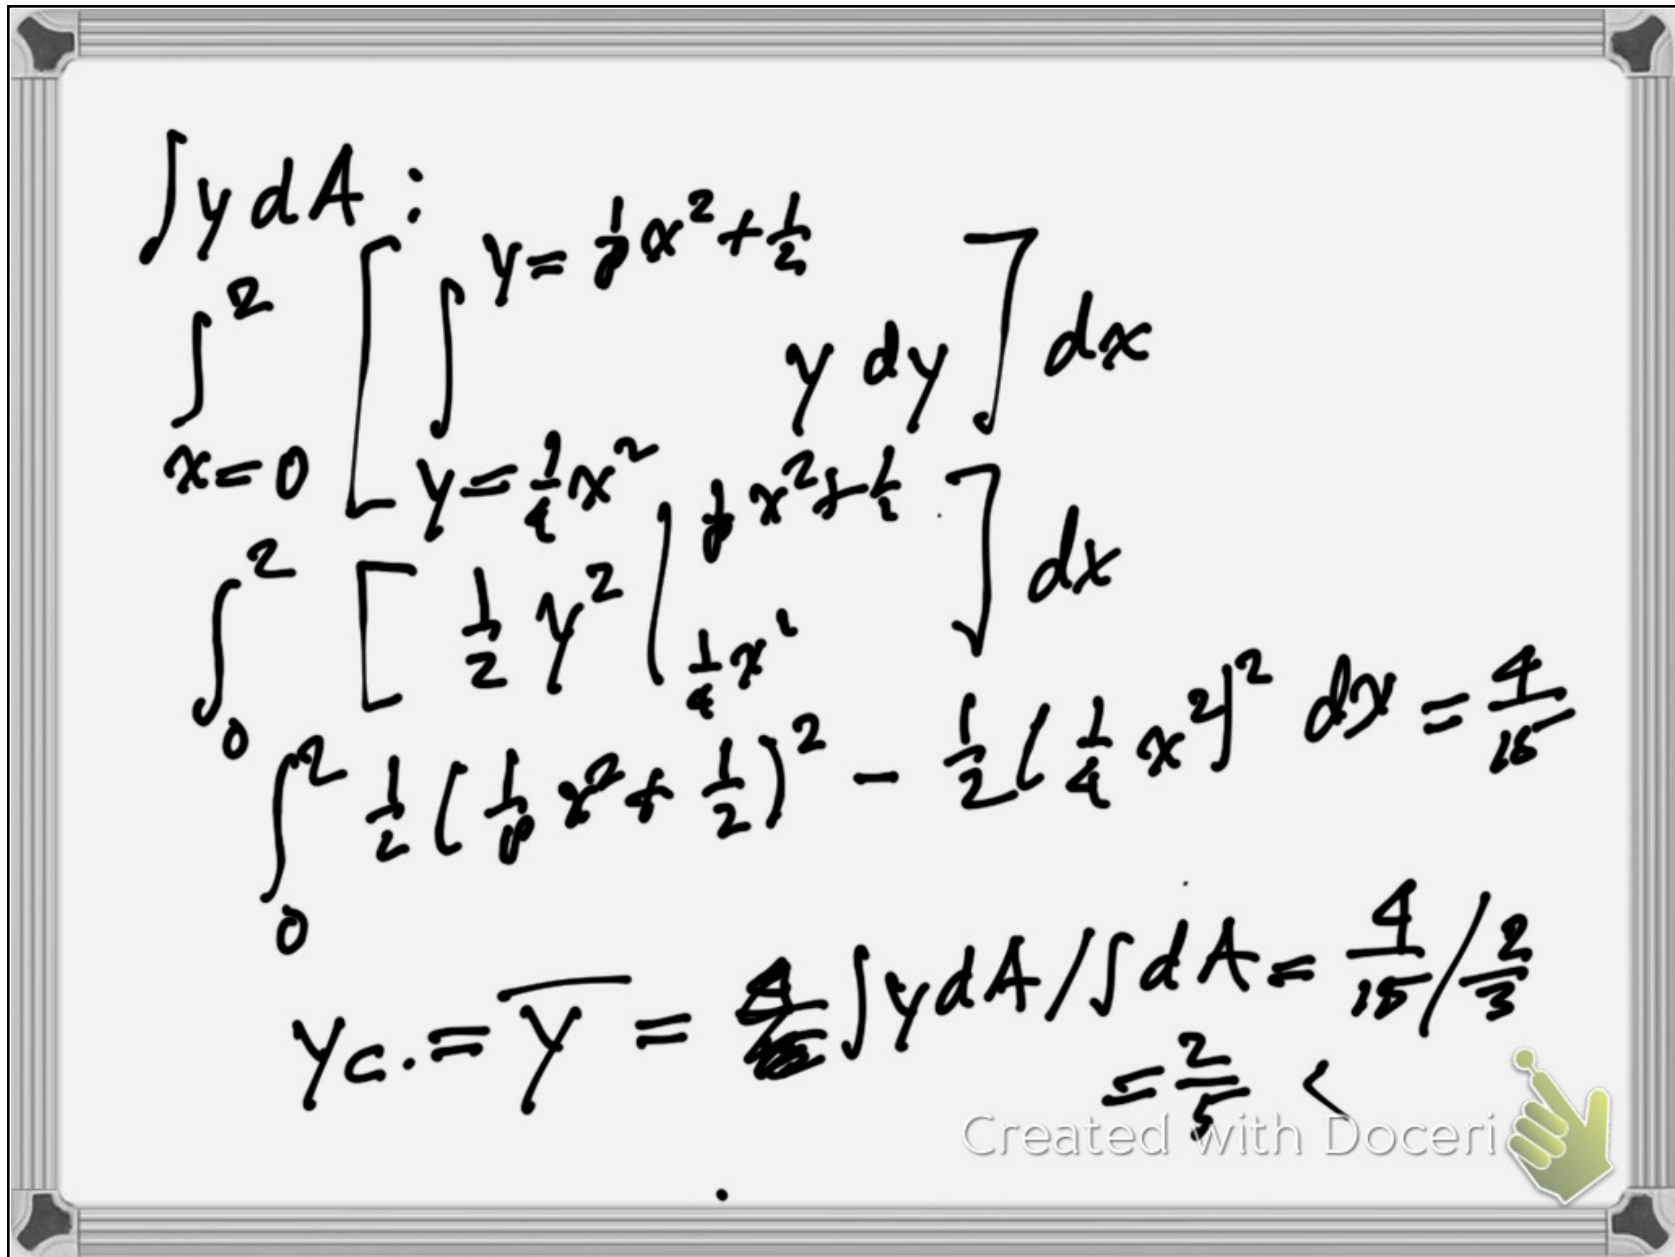 ∫ y dA :
∫_{x=0}^{2} [ ∫_{y=1/4 x²}^{y=1/8 x²+1/2} y dy ] dx
∫_0^2 [ 1/2 y² |_{1/4 x²}^{1/8 x²+1/2} ] dx
∫_0^2 1/2 (1/8 x² + 1/2)² − 1/2 (1/4 x²)² dx = 4/15
y_c. = y̅ = ∫ y dA / ∫ dA = 4/15 / 2/3
= 2/5 <
Created with Doceri